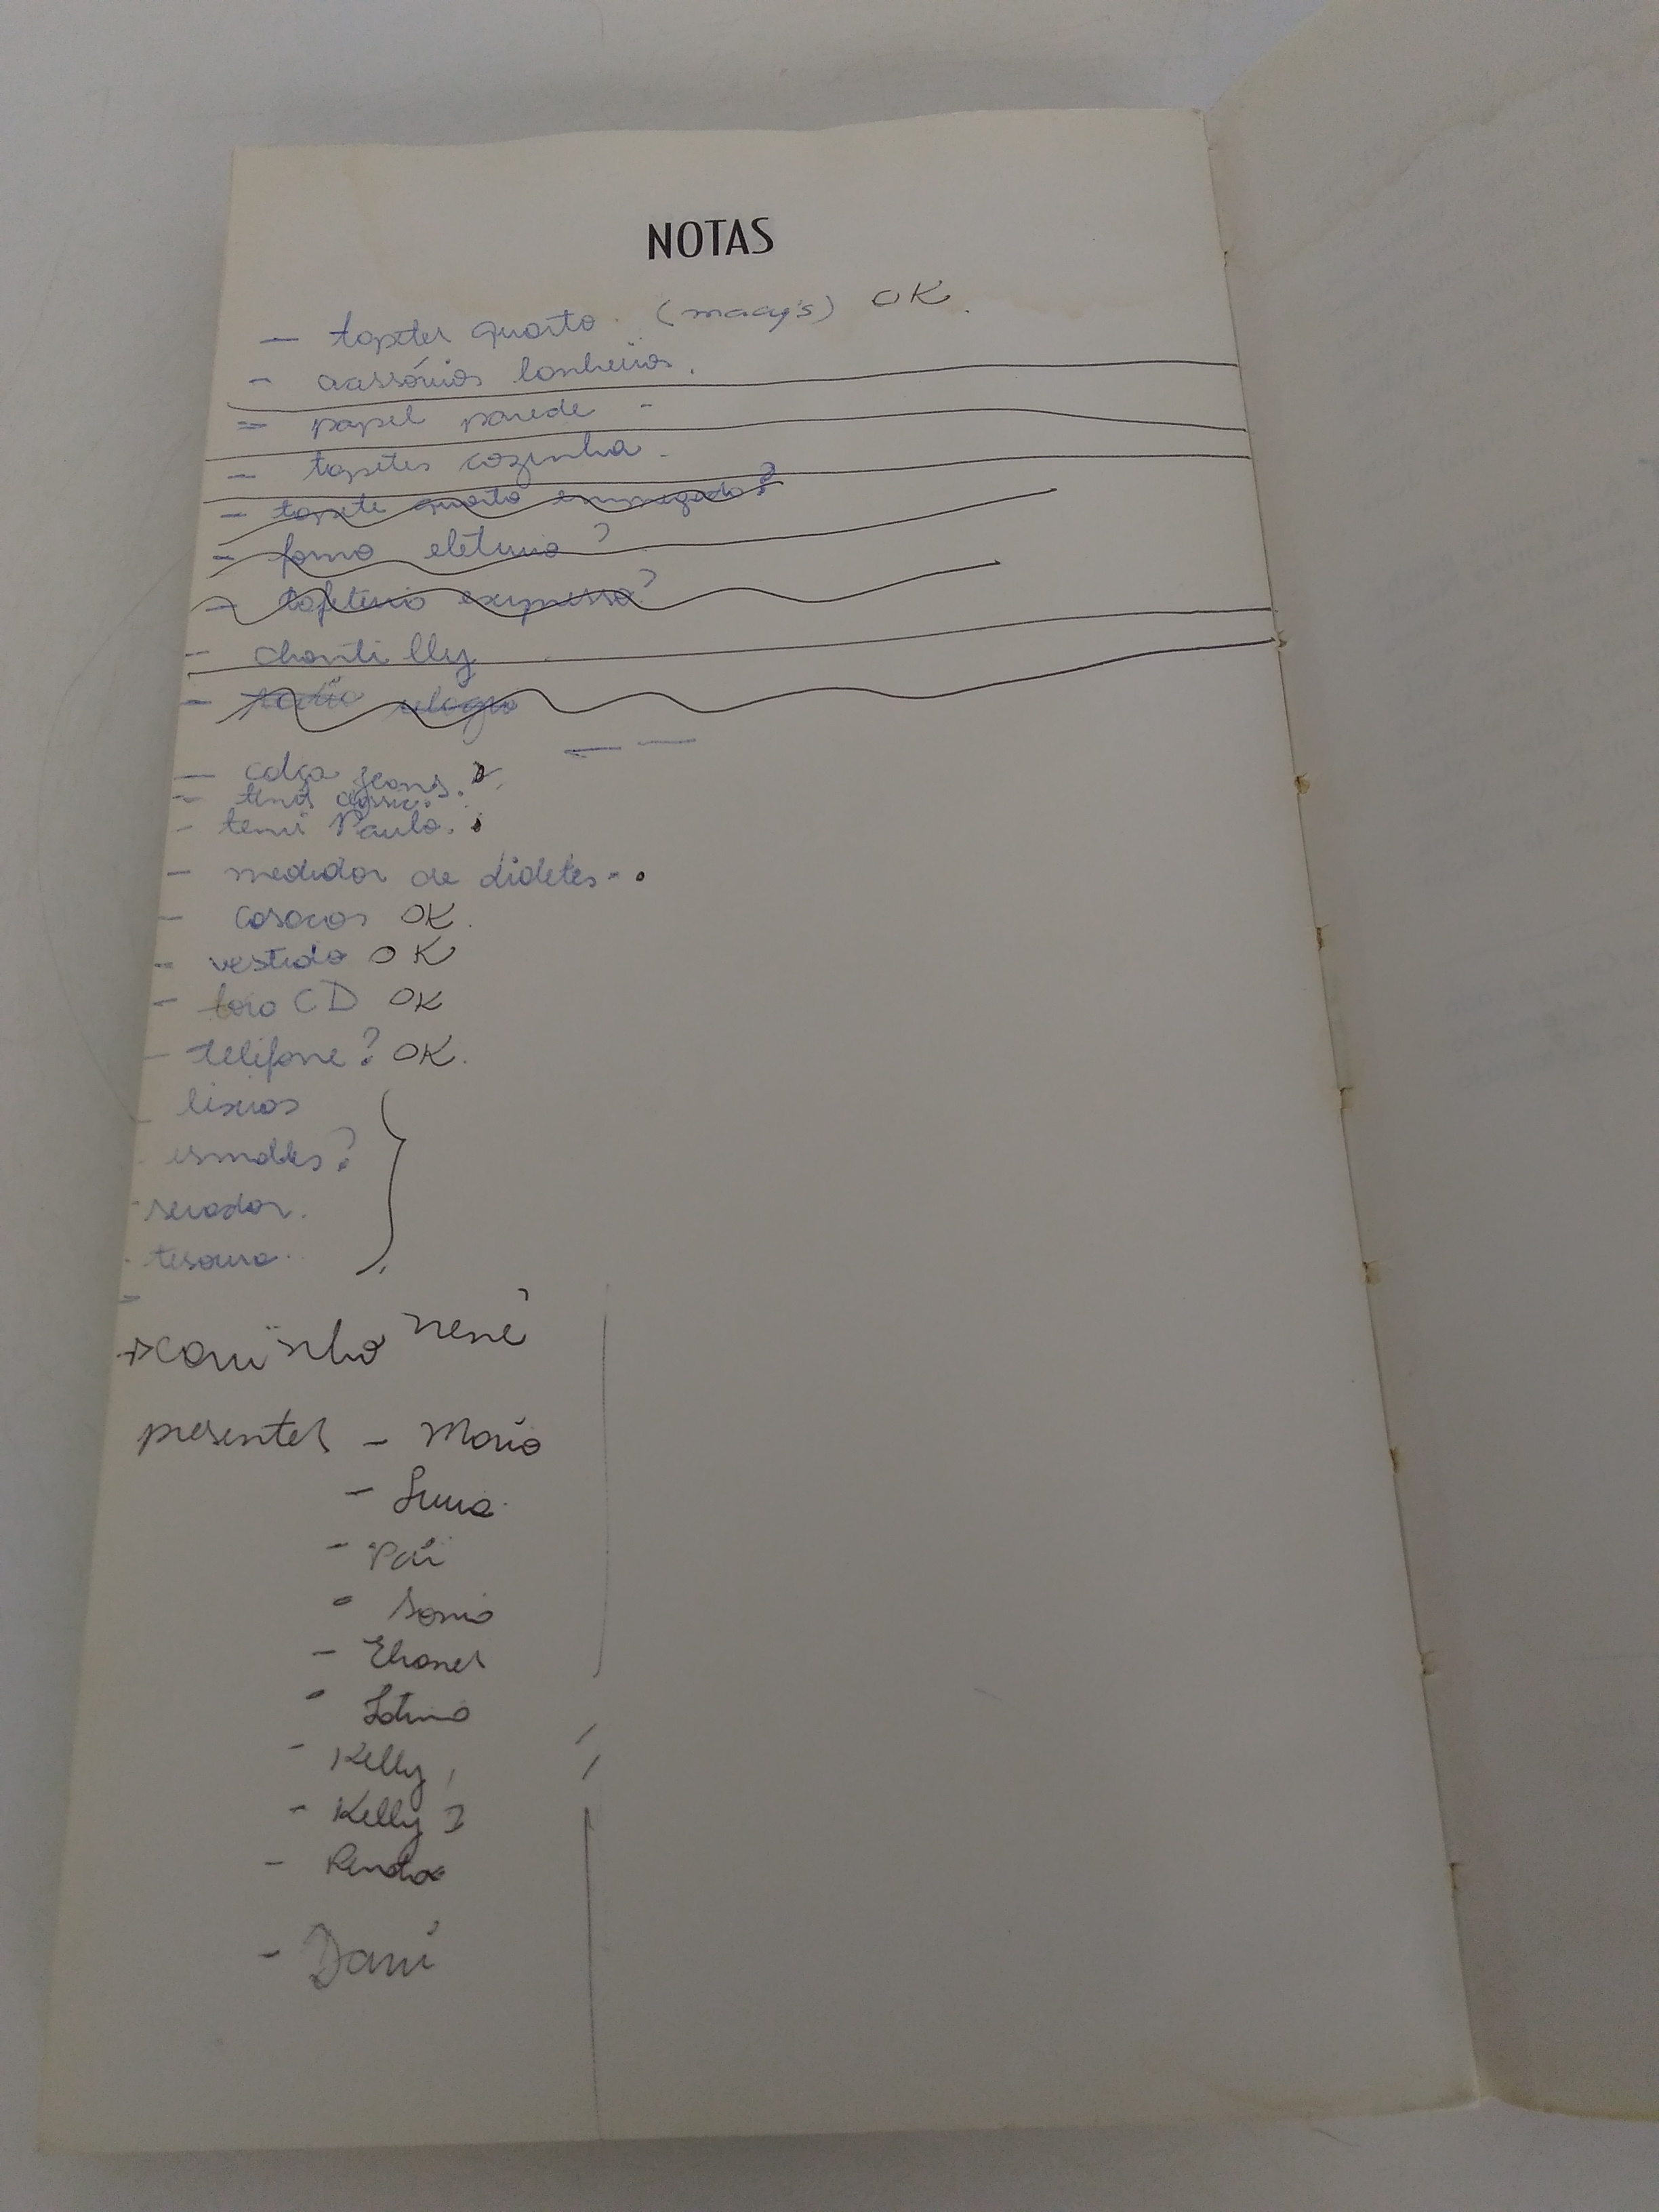 NOTAS
- tapetes quarto. (macy's) OK.
- acessórios banheiros.
= papel parede -
- tapetes cozinha.
- tapete quarto empregada?
- forno elétrico?
- cafeteria expresso?
- chantilly
- rádio relógio
- calça jeans.
- tenis classic.
- tenis Paulo.
- medidor de diabetes -.
- casacos OK.
- vestido OK
- CD OK
- telefone? OK.
- lixas
- esmaltes?
- secador.
- tesoura.
carrinho nenê
presentes - Maria
- Pai
- Sonia
- Fátima
- Kelly 1
- Kelly 2
- Renata
- Dani